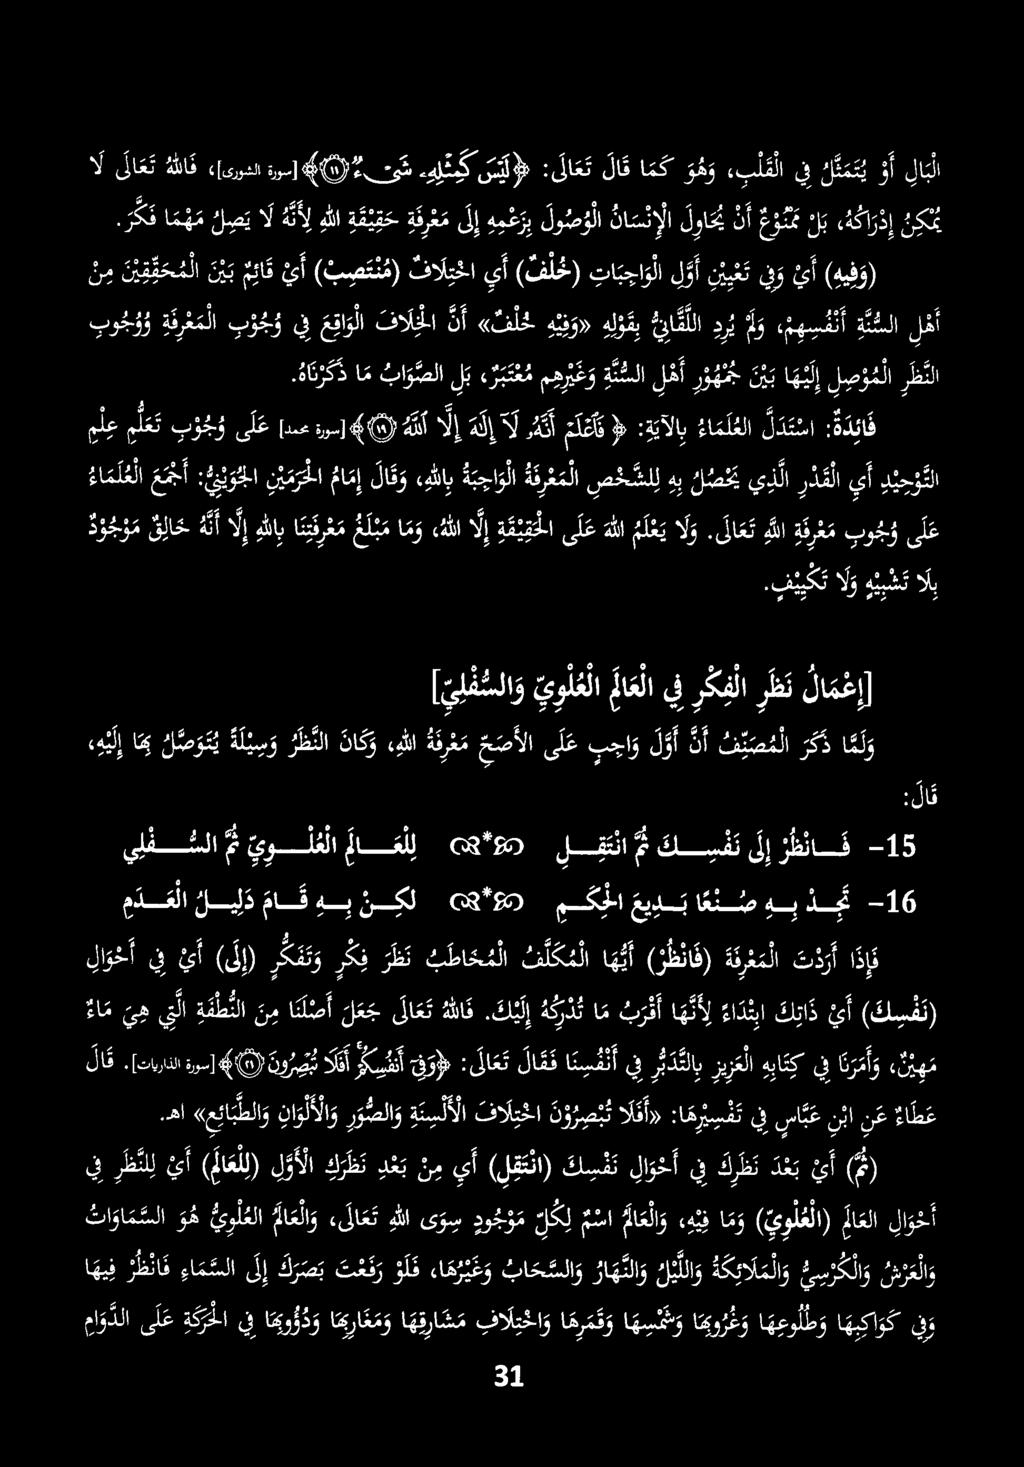 الْبَالِ أَوْ يُتَمَثَّلُ فِي الْقَلْبِ، وَهُوَ كَمَا قَالَ تَعَالَى: ﴿لَيْسَ كَمِثْلِهِۦ شَىْءٌ ١١﴾ [سورة الشورى]، فَاللهُ تَعَالَى لَا
يُمْكِنُ إِدْرَاكُهُ، بَلْ مَمْنُوْعٌ أَنْ يُحَاوِلَ الْإِنْسَانُ الْوُصُوْلَ بِزَعْمِهِ إِلَى مَعْرِفَةِ حَقِيْقَةِ اللهِ لِأَنَّهُ لَا يَصِلُ مَهْمَا فَكَّرَ.
(وَفِيهِ) أَيْ وَفِي تَعْيِيْنِ أَوَّلِ الْوَاجِبَاتِ (خُلْفٌ) أَيِ اخْتِلَافٌ (مُنْتَصِبْ) أَيْ قَائِمٌ بَيْنَ الْمُحَقِّقِيْنَ مِنْ
أَهْلِ السُّنَّةِ أَنْفُسِهِمْ، وَلَمْ يُرِدِ اللَّقَّانِيُّ بِقَوْلِهِ «وَفِيْهِ خُلْفٌ» أَنَّ الْخِلَافَ الْوَاقِعَ فِي وُجُوْبِ الْمَعْرِفَةِ وَوُجُوبِ
النَّظَرِ الْمُوْصِلِ إِلَيْهَا بَيْنَ جُمْهُوْرِ أَهْلِ السُّنَّةِ وَغَيْرِهِم مُعْتَبَرٌ، بَلِ الصَّوَابُ مَا ذَكَرْنَاهُ.
فَائِدَةٌ: اسْتَدَلَّ الْعُلَمَاءُ بِالْآيَةِ: ﴿فَٱعْلَمْ أَنَّهُۥ لَآ إِلَٰهَ إِلَّا ٱللَّهُ ١٩﴾ [سورة محمد] عَلَى وُجُوْبِ تَعَلُّمِ عِلْمِ
التَّوْحِيْدِ أَيِ الْقَدْرِ الَّذِي يَحْصُلُ بِهِ لِلشَّخْصِ الْمَعْرِفَةُ الْوَاجِبَةُ بِاللهِ، وَقَالَ إِمَامُ الْحَرَمَيْنِ الْجُوَيْنِيُّ: أَجْمَعَ الْعُلَمَاءُ
عَلَى وُجُوبِ مَعْرِفَةِ اللهِ تَعَالَى. وَلَا يَعْلَمُ اللهَ عَلَى الْحَقِيْقَةِ إِلَّا اللهُ، وَمَا مَبْلَغُ مَعْرِفَتِنَا بِاللهِ إِلَّا أَنَّهُ خَالِقٌ مَوْجُوْدٌ
بِلَا تَشْبِيْهٍ وَلَا تَكْيِيْفٍ.
[إِعْمَالُ نَظَرِ الْفِكْرِ فِي الْعَالَمِ الْعُلْوِيِّ وَالسُّفْلِيِّ]
وَلَمَّا ذَكَرَ الْمُصَنِّفُ أَنَّ أَوَّلَ وَاجِبٍ عَلَى الْأَصَحِّ مَعْرِفَةُ اللهِ، وَكَانَ النَّظَرُ وَسِيْلَةً يُتَوَصَّلُ بِهَا إِلَيْهِ،
قَالَ:
15- فَــانْظُرْ إِلَى نَفْسِــكَ ثُمَّ انْتَقِــلِ * لِلْعَــالَمِ الْعُلْــوِيِّ ثُمَّ السُّــفْلِي
16- تَجِــدْ بِــهِ صُــنْعًا بَــدِيعَ الْحِكَــمِ * لَكِــنْ بِــهِ قَــامَ دَلِيــلُ الْعَــدَمِ
فَإِذَا أَرَدْتَ الْمَعْرِفَةَ (فَانْظُرْ) أَيُّهَا الْمُكَلَّفُ الْمُخَاطَبُ نَظَرَ فِكْرٍ وَتَفَكُّرٍ (إِلَى) أَيْ فِي أَحْوَالِ
(نَفْسِكَ) أَيْ ذَاتِكَ ابْتِدَاءً لِأَنَّهَا أَقْرَبُ مَا تُدْرِكُهُ إِلَيْكَ. فَاللهُ تَعَالَى جَعَلَ أَصْلَنَا مِنَ النُّطْفَةِ الَّتِي هِيَ مَاءٌ
مَهِيْنٌ، وَأَمَرَنَا فِي كِتَابِهِ الْعَزِيزِ بِالتَّدَبُّرِ فِي أَنْفُسِنَا فَقَالَ تَعَالَى: ﴿وَفِىٓ أَنفُسِكُمْ أَفَلَا تُبْصِرُونَ ٢١﴾ [سورة الذاريات]. قَالَ
عَطَاءٌ عَنِ ابْنِ عَبَّاسٍ فِي تَفْسِيْرِهَا: «أَفَلَا تُبْصِرُوْنَ اخْتِلَافَ الْأَلْسِنَةِ وَالصُّوَرِ وَالْأَلْوَانِ وَالطَّبَائِعِ» اهـ.
(ثُمَّ) أَيْ بَعْدَ نَظَرِكَ فِي أَحْوَالِ نَفْسِكَ (انْتَقِلِ) أَيِ مِنْ بَعْدِ نَظَرِكَ الْأَوَّلِ (لِلْعَالَمِ) أَيْ لِلنَّظَرِ فِي
أَحْوَالِ الْعَالَمِ (الْعُلْوِيِّ) وَمَا فِيْهِ، وَالْعَالَمُ اسْمٌ لِكُلِّ مَوْجُودٍ سِوَى اللهِ تَعَالَى، وَالْعَالَمُ الْعُلْوِيُّ هُوَ السَّمَاوَاتُ
وَالْعَرْشُ وَالْكُرْسِيُّ وَالْمَلَائِكَةُ وَاللَّيْلُ وَالنَّهَارُ وَالسَّحَابُ وَغَيْرُهَا، فَلَوْ رَفَعْتَ بَصَرَكَ إِلَى السَّمَاءِ فَانْظُرْ فِيهَا
وَفِي كَوَاكِبِهَا وَطُلُوعِهَا وَغُرُوبِهَا وَشَمْسِهَا وَقَمَرِهَا وَاخْتِلَافِ مَشَارِقِهَا وَمَغَارِبِهَا وَدُؤُوبِهَا فِي الْحَرَكَةِ عَلَى الدَّوَامِ
31